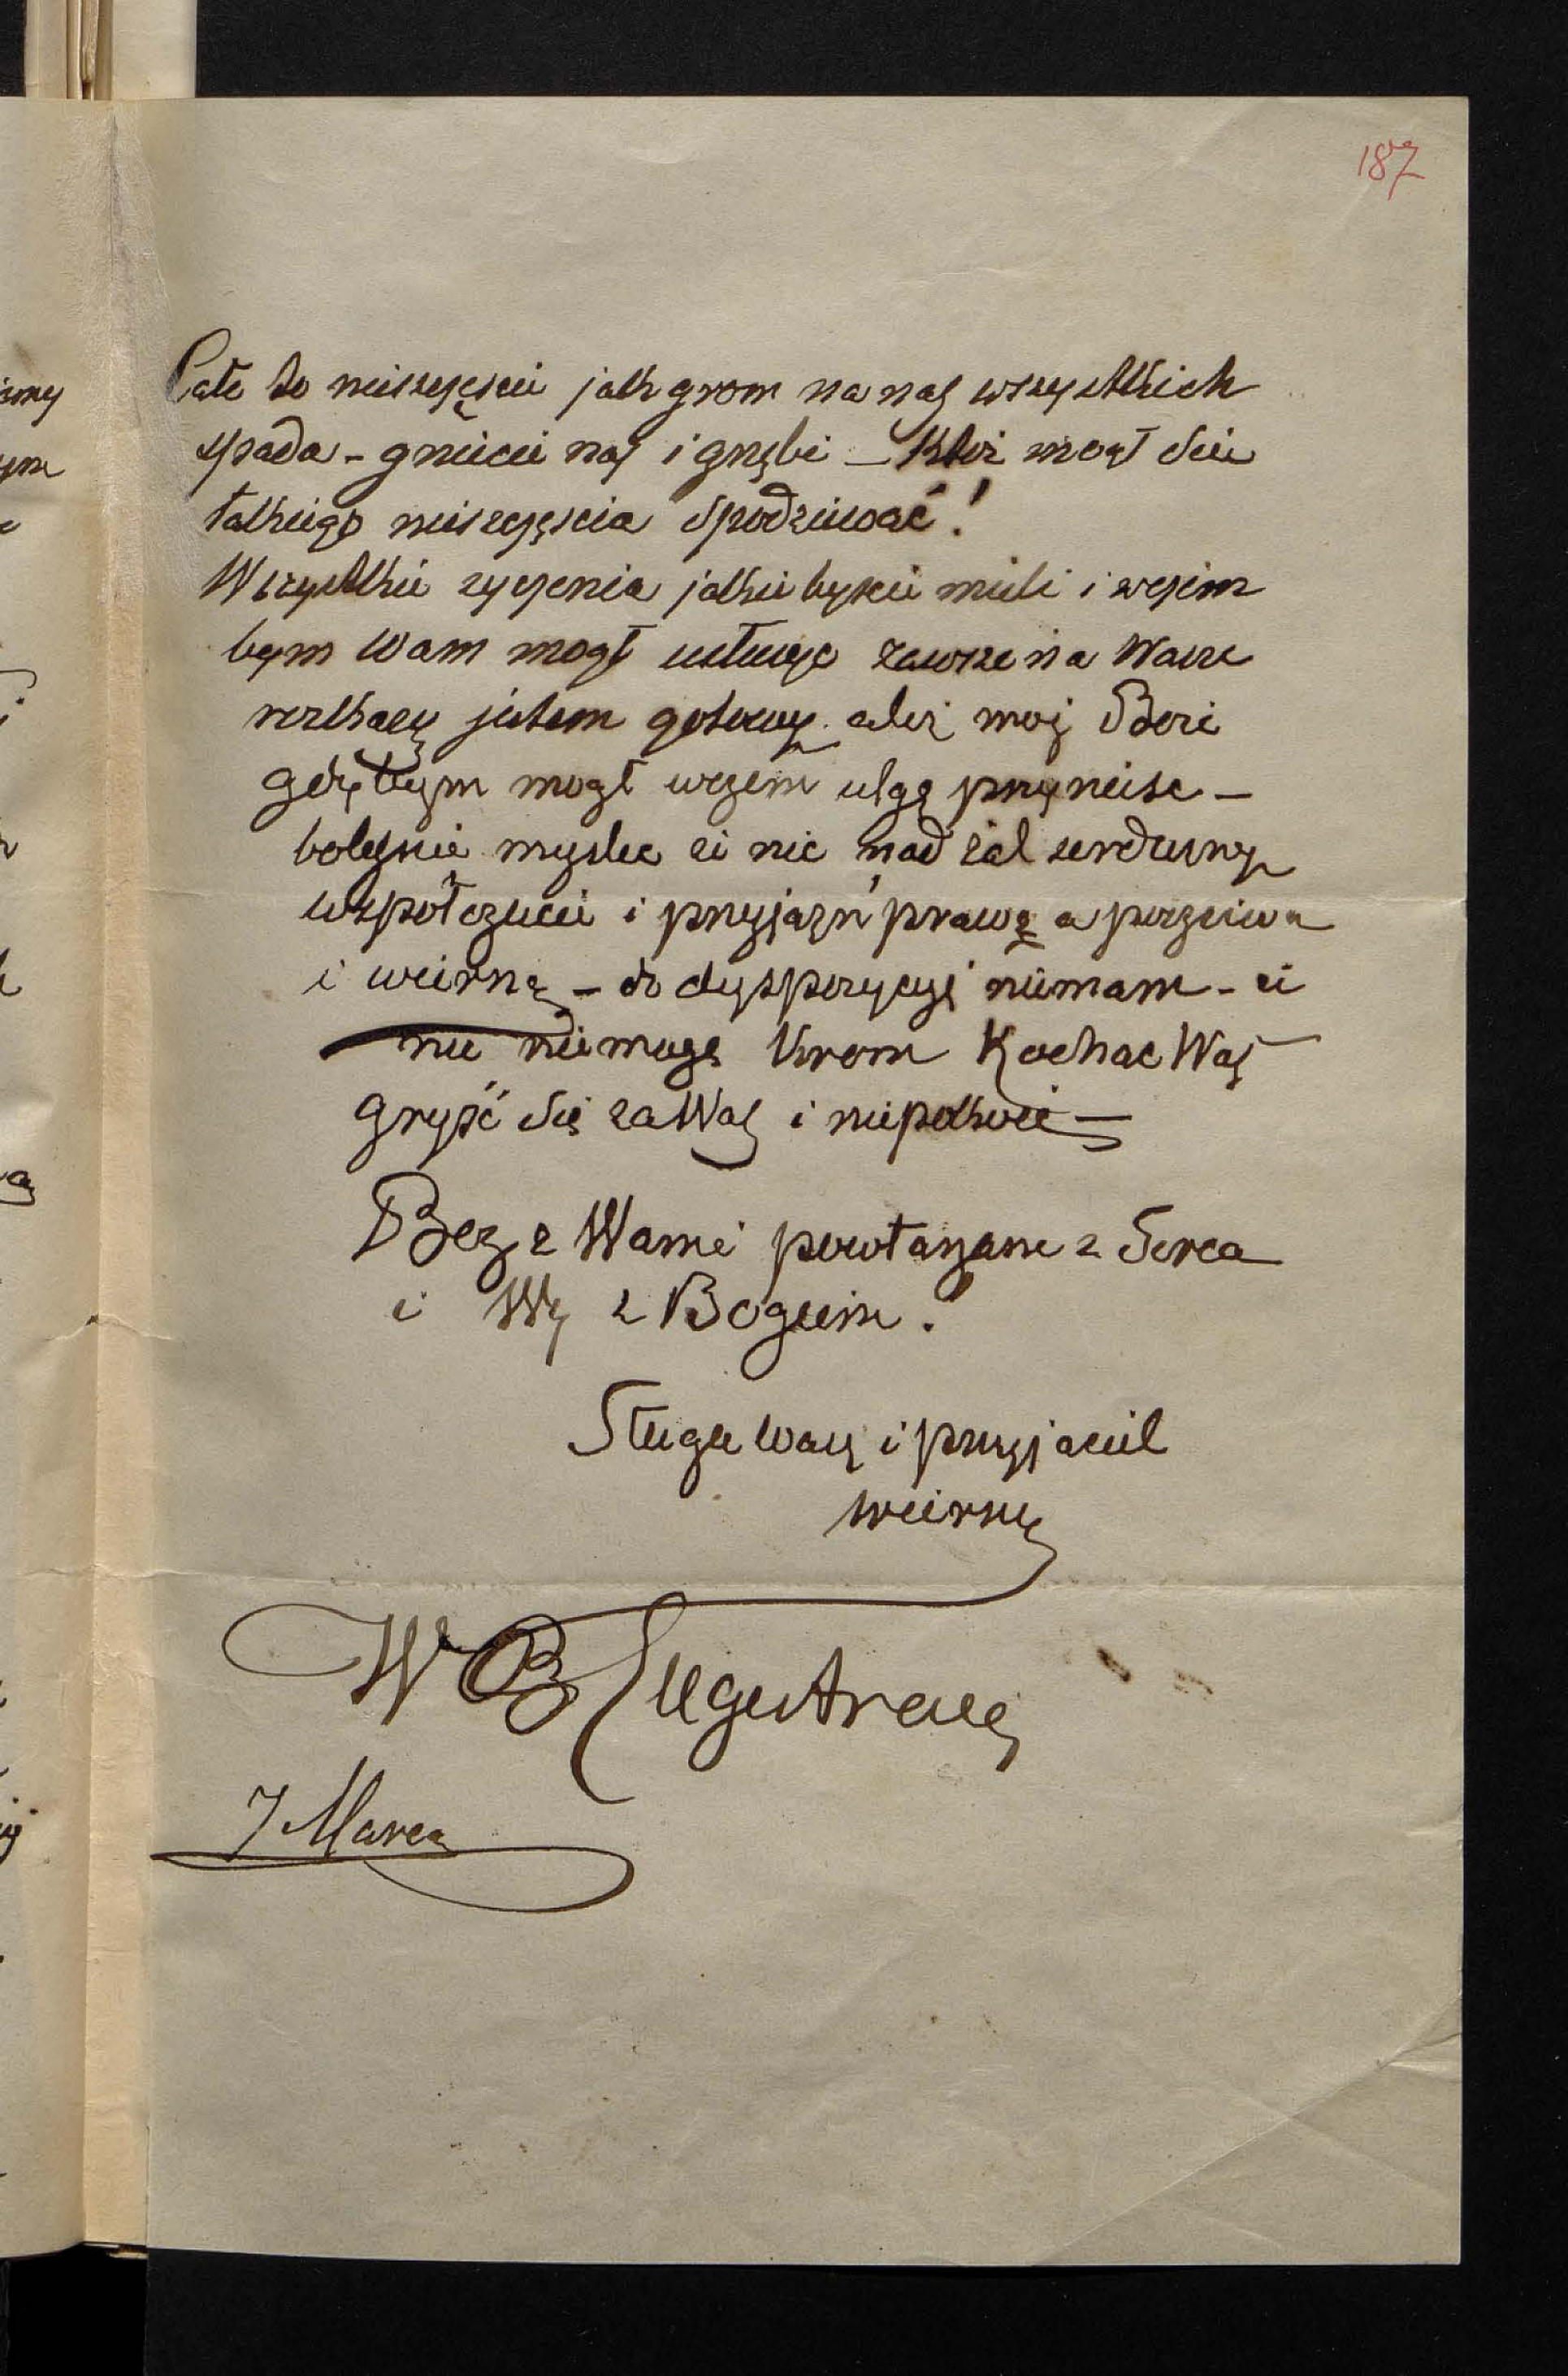 187
Całe to nieszczęście jak grom na nas wszystkich
spada - gniecie nas i gnębi - Któż mógł sie
takiego nieszczęscia spodziewać!
Wszystkie zyczenia jakie byscie mieli i w czem
bym Wam mogł usłużyc zawsze na Wasze
rozkazy jestem gotowy. aleź moj Boze
gdybym mogł w czem ulgę przyniesc -
bolesnie myslec ze nic nad żal serdeczny
współczucie i przyjaźń prawą a poczciwa
i wierną - do dyspozycyi niemam - ze
nic niemogę krom Kochac Was
gryść się za Was i niepokoic -
Bog z Wami powtarzam z Serca
i Wy z Bogiem.
Sługa Wasz i przyjaciel
wierny
W B Engestroem
7 Marca